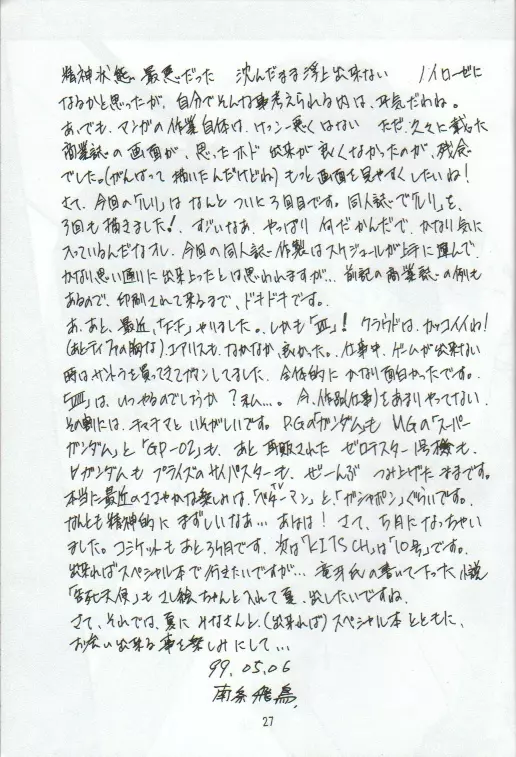 精神状態 最悪だった 沈んだまま浮上出来ない ノイローゼに
なるかと思ったが、自分でそんな事考えられる内は、平気だわね。
あ、でも、マンガの作業自体は、けっこー悪くはない ただ、久々に載った
商業誌の画面が、思ったホド 出来が良くなかったのが、残念
でした。(がんばって 描いたんだけどね) もっと画面を見やすくしたいね!
さて、今回の「ルリ」は なんと ついに3回目です。同人誌で「ルリ」を、
3回も描きました! すごいなあ、やっぱり 何だかんだで、かなり気に
入っているんだなオレ、今回の同人誌作製はスケジュールが上手に運んで、
かなり思い通りに出来上ったとは思われますが… 前記の商業誌の例も
あるので、印刷されて来るまで、ドキドキです。
あ、あと、最近、「F.F」やりました。しかも「Ⅶ」! クラウドは、カッコイイね!
(あとティファの胸な)、エアリスも、なかなか、良かった。仕事中、ゲームが出来ない
時はサントラを買ってきてガマンしてました。全体的に かなり面白かったです。
「Ⅷ」は、いつやるのでしょうか?私…。今、作品(仕事)をあまりやってない、
その割には、チャチャマと いそがしいです。P.Gの「ガンダム」も MGの「スーパー
ガンダム」と「GP-02」も、あと 再販された ゼロテスター1号機も、
Vガンダムも プライズのサイバスターも、ぜーんぶ つみ上げたままです。
本当に最近のささやかな楽しみは、TV「ベターマン」と、「ガシャポン」ぐらいです。
なんとも精神的に まずしいなあ… あはは! さて、5月になっちゃい
ました。コミケットもあと3ケ月です。次は「KITSCH」は「10号」です。
出来ればスペシャル本で行きたいですが… 竜牙氏の書いて下った小説
「告死天使」も さし絵ちゃんと入れて夏、出したいですね。
さて、それでは、夏に みなさんと、(出来れば) スペシャル本とともに、
お会い出来る事を楽しみにして…
99.05.06
南条飛鳥
27